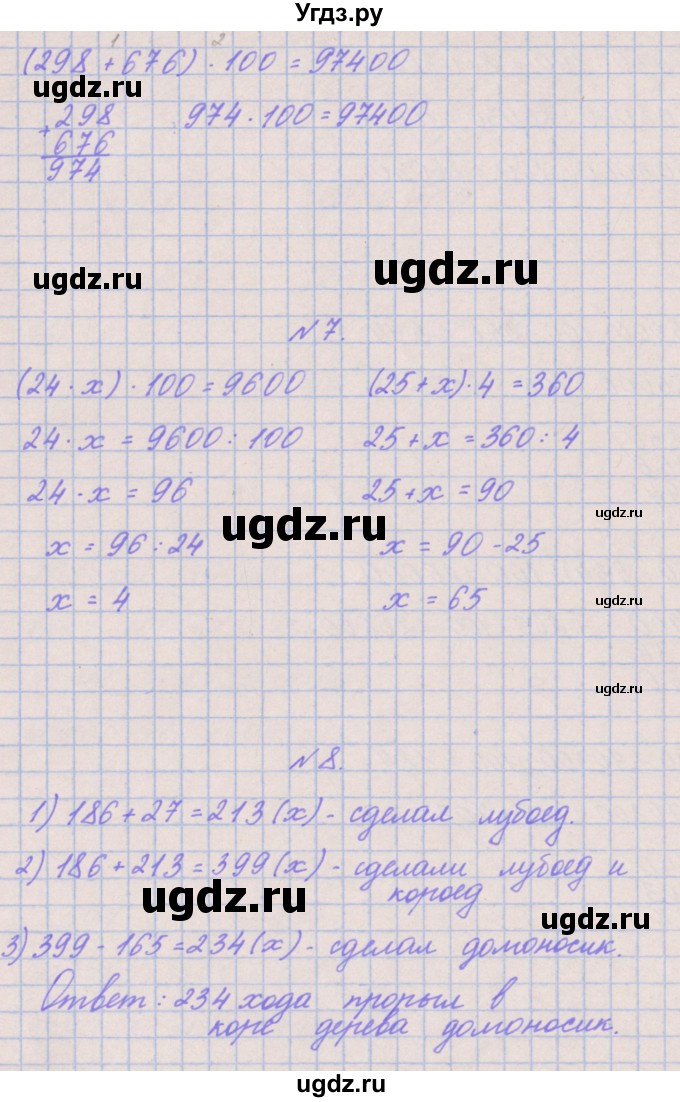 Угдз.ру
1 2
(298 + 676) · 100 = 97400
ugdz.ru
+ 298 974 · 100 = 97400
676
974
ugdz.ru
ugdz.ru
№7.
(24 · x) · 100 = 9600 (25 + x) · 4 = 360
24 · x = 9600 : 100 25 + x = 360 : 4
24 · x = 96 25 + x = 90
ugdz.ru
ugdz.ru
x = 96 : 24 x = 90 - 25
x = 4 x = 65
ugdz.ru
ugdz.ru
№8.
1) 186 + 27 = 213 (х) - сделал лубоед.
2) 186 + 213 = 399 (х) - сделали лубоед и
короед
ugdz.ru
ugdz.ru
3) 399 - 165 = 234 (х) - сделал домоносик.
Ответ: 234 хода прорыл в
коре дерева домоносик.
ugdz.ru